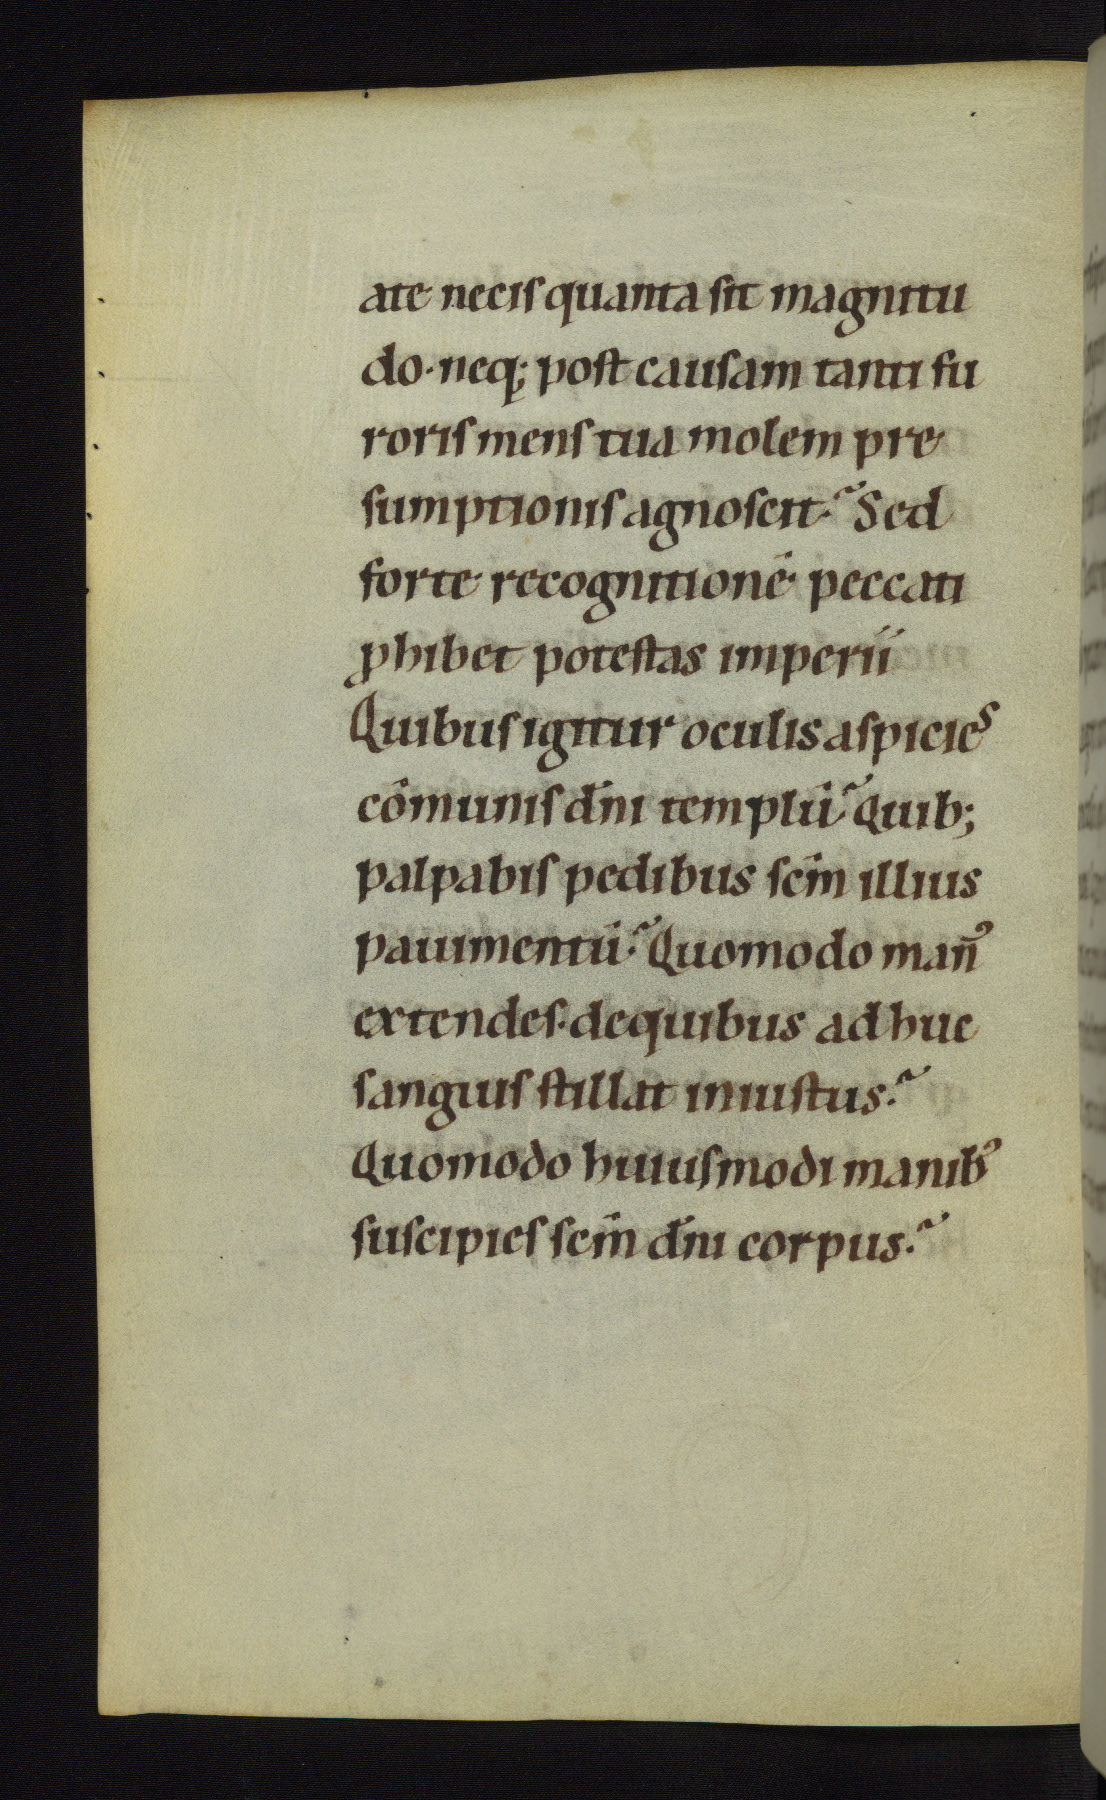 ate necis quanta sit magnitu
do· neq; post causam tanti fu
roris mens tua molem pre
sumptionis agnoscit? Sed
forte recognitionē peccati
ꝓhibet potestas imperii
Quibus igitur oculis aspicies
cōmunis dn̄i templū? Quib;
palpabis pedibus scm̄ illius
pauimentū? Quomodo manꝰ
extendes· de quibus adhuc
sanguis stillat iniustus?
Quomodo huiusmodi manibꝰ
suscipies scm̄ dn̄i corpus?